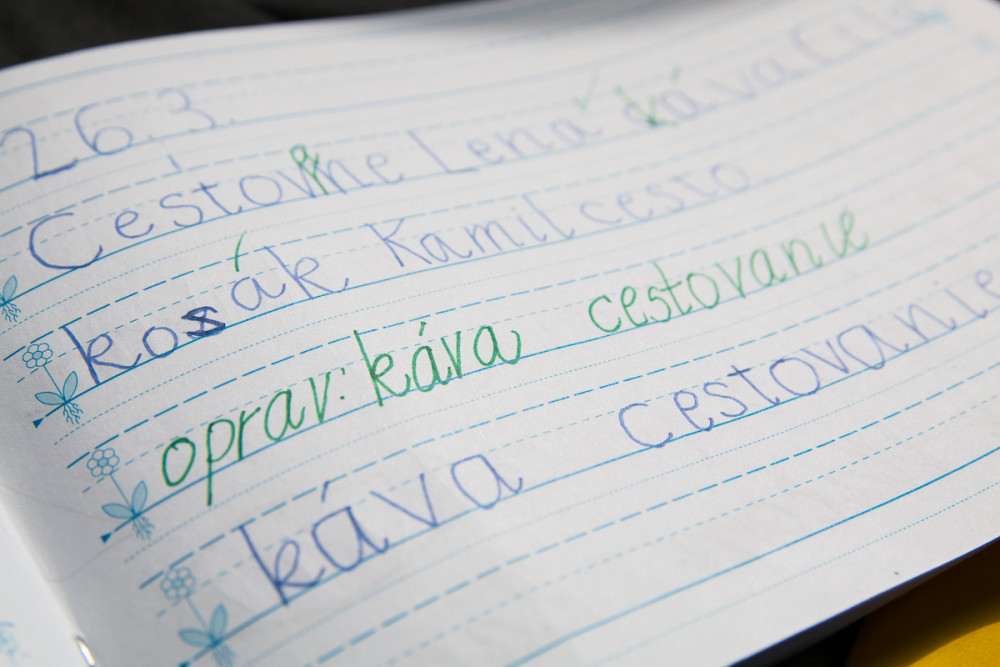 26.3.
Cestovanie Lena káva Cilá
kosák Kamil cesto
oprav: káva cestovanie
káva cestovanie